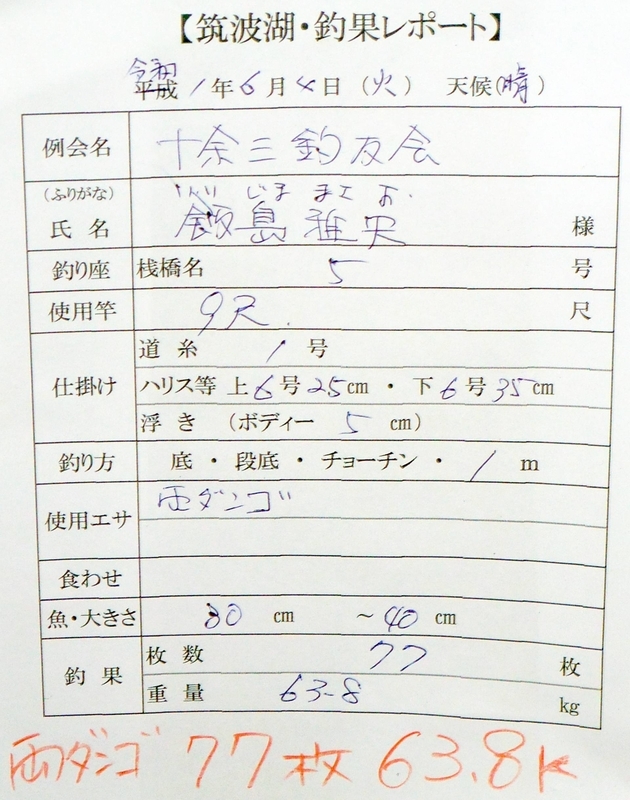 【筑波湖・釣果レポート】
令和
平成 1年6月4日（火） 天候（晴）
例会名 十余三釣友会
（ふりがな） いいじま まさお
氏名 飯島雅央 様
釣り座 桟橋名 5 号
使用竿 9尺. 尺
仕掛け 道糸 1 号
ハリス等 上6号25cm ・ 下6号35cm
浮き （ボディー 5 cm）
釣り方 底 ・ 段底 ・ チョーチン ・ 1 m
使用エサ 両ダンゴ
食わせ
魚・大きさ 30 cm ～40 cm
釣果 枚数 77 枚
重量 63-8 kg
両ダンゴ 77枚 63.8K